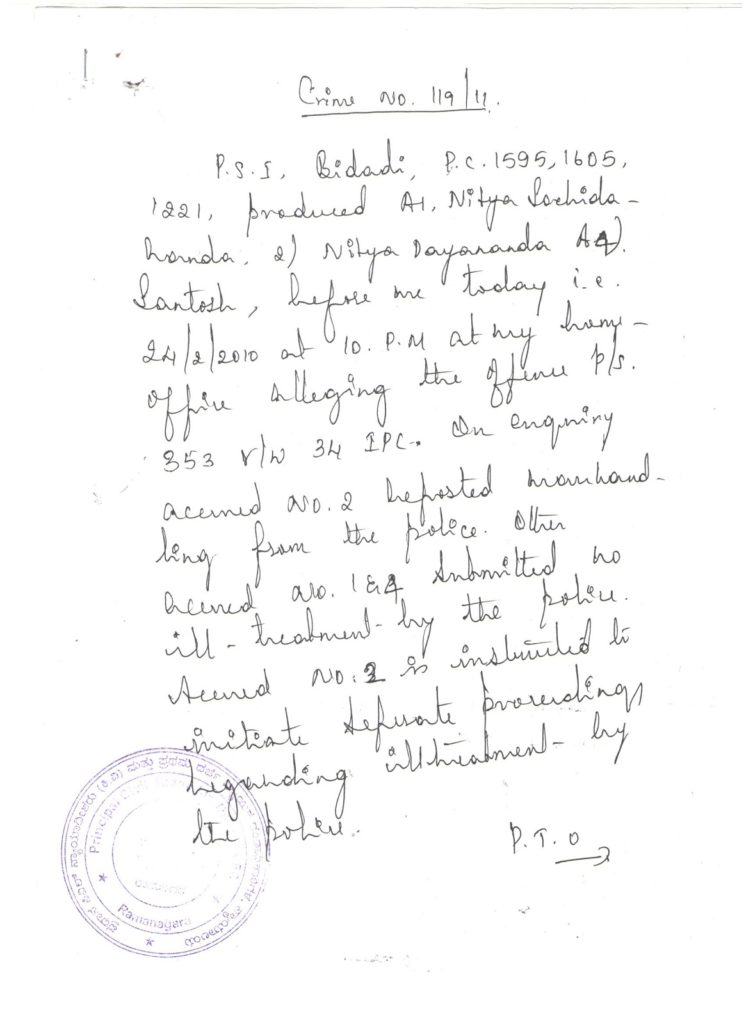 Crime No. 119/11.
P.S.I, Bidadi, P.C. 1595, 1605,
1221, produced A1, Nitya Sachida-
nanda, 2) Nitya Dayananda A4).
Santosh, before me today i.e.
24/2/2010 at 10. P.M at my home-
office alleging the offence p/s.
353 r/w 34 IPC. On enquiry
accused No. 2 reported manhand-
ling from the police. Other
accused No. 1 & 4 submitted no
ill-treatment by the police.
Accused No. 2 is instructed to
initiate seperate proceedings
regarding illtreatment by
the police.
P.T.O
Principal
Ramanagara